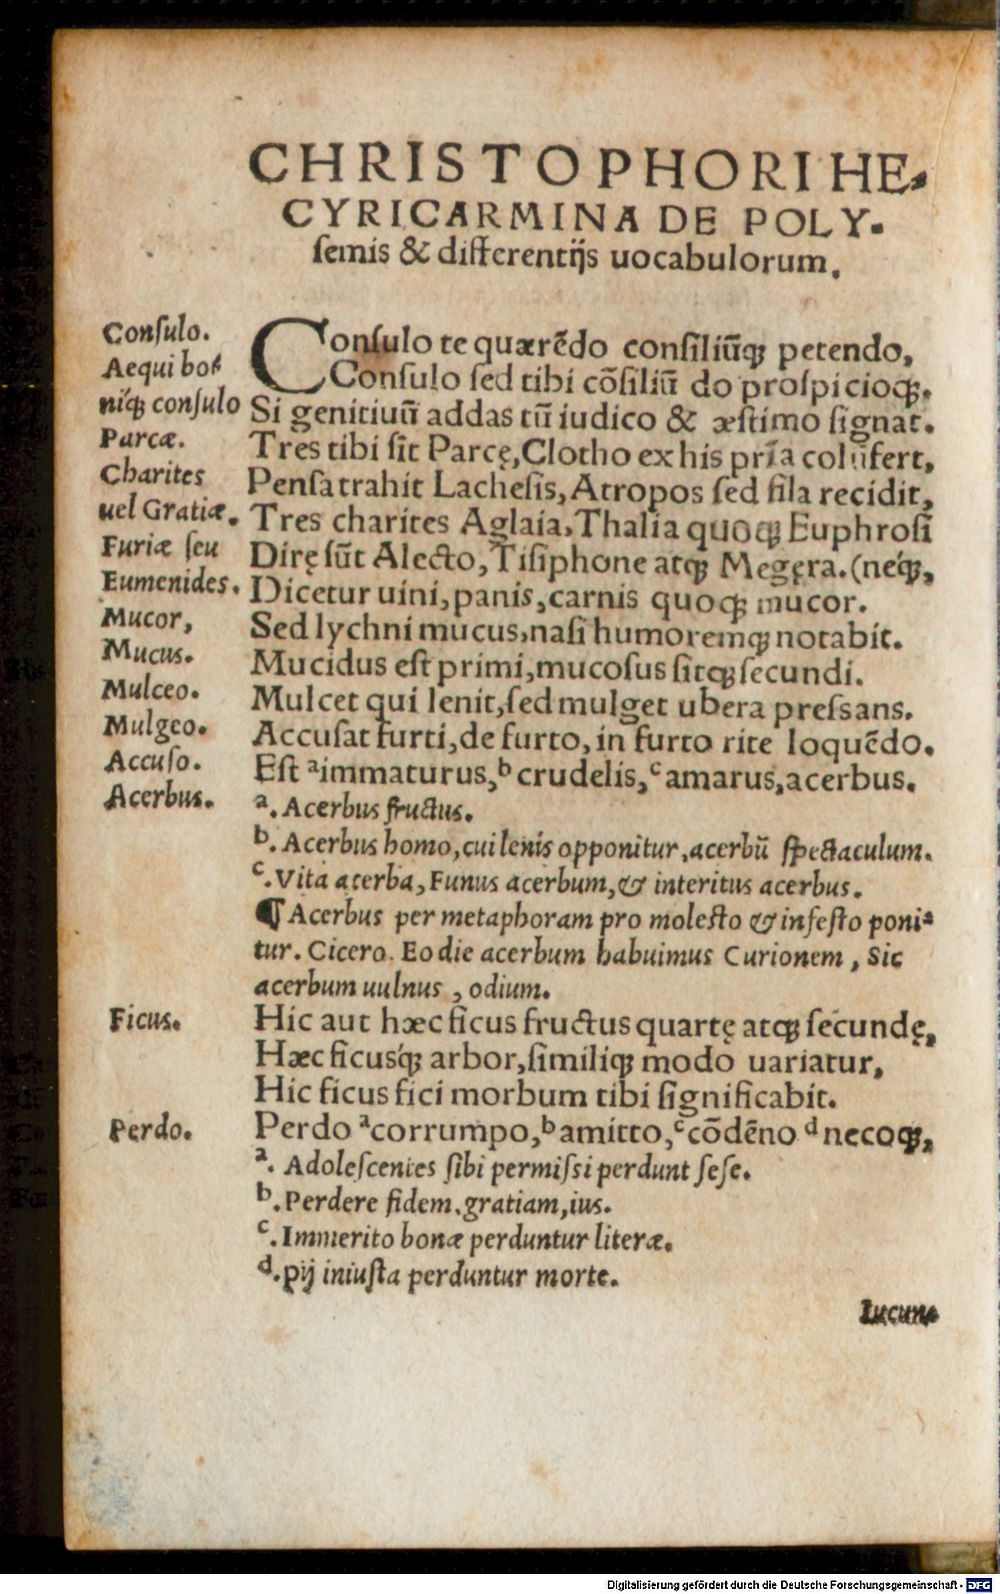 CHRISTOPHORI HE-
CYRI CARMINA DE POLY-
ſemis & differentijs uocabulorum.
Conſulo.
Aequi bo-
niq́; conſulo
Parcæ.
Charites
uel Gratiæ.
Furiæ ſeu
Eumenides.
Mucor,
Mucus.
Mulceo.
Mulgeo.
Accuſo.
Acerbus.
Conſulo te quærẽdo conſiliũq; petendo,
Conſulo ſed tibi cõſiliũ do proſpicioq́;.
Si genitiuũ addas tũ iudico & æſtimo ſignat.
Tres tibi ſit Parcę, Clotho ex his prĩa colũfert,
Penſa trahit Lacheſis, Atropos ſed fila recidit,
Tres charites Aglaia, Thalia quoq; Euphroſi
Dirę ſũt Alecto, Tiſiphone atq; Megęra. (neq́;,
Dicetur uini, panis, carnis quoq; mucor.
Sed lychni mucus, naſi humoremq; notabit.
Mucidus eſt primi, mucoſus ſitq; ſecundi.
Mulcet qui lenit, ſed mulget ubera preſsans.
Accuſat furti, de furto, in furto rite loquẽdo.
Eſt ᵃ immaturus, ᵇ crudelis, ᶜ amarus, acerbus.
ᵃ. Acerbus fructus.
ᵇ. Acerbus homo, cui lenis opponitur, acerbũ ſpectaculum.
ᶜ. Vita acerba, Funus acerbum, & interitus acerbus.
¶ Acerbus per metaphoram pro moleſto & infeſto poni-
tur. Cicero. Eo die acerbum habuimus Curionem, Sic
acerbum uulnus, odium.
Ficus.
Hic aut hæc ficus fructus quartę atq; ſecundę,
Hæc ficusq́; arbor, ſimiliq; modo uariatur,
Hic ficus fici morbum tibi ſignificabit.
Perdo.
Perdo ᵃ corrumpo, ᵇ amitto, ᶜ cõdẽno ᵈ necoq́;,
ᵃ. Adoleſcentes ſibi permiſsi perdunt ſeſe.
ᵇ. Perdere fidem, gratiam, ius.
ᶜ. Immerito bonæ perduntur literæ.
ᵈ. pij iniuſta perduntur morte.
Iucun-
Digitalisierung gefördert durch die Deutsche Forschungsgemeinschaft - DFG